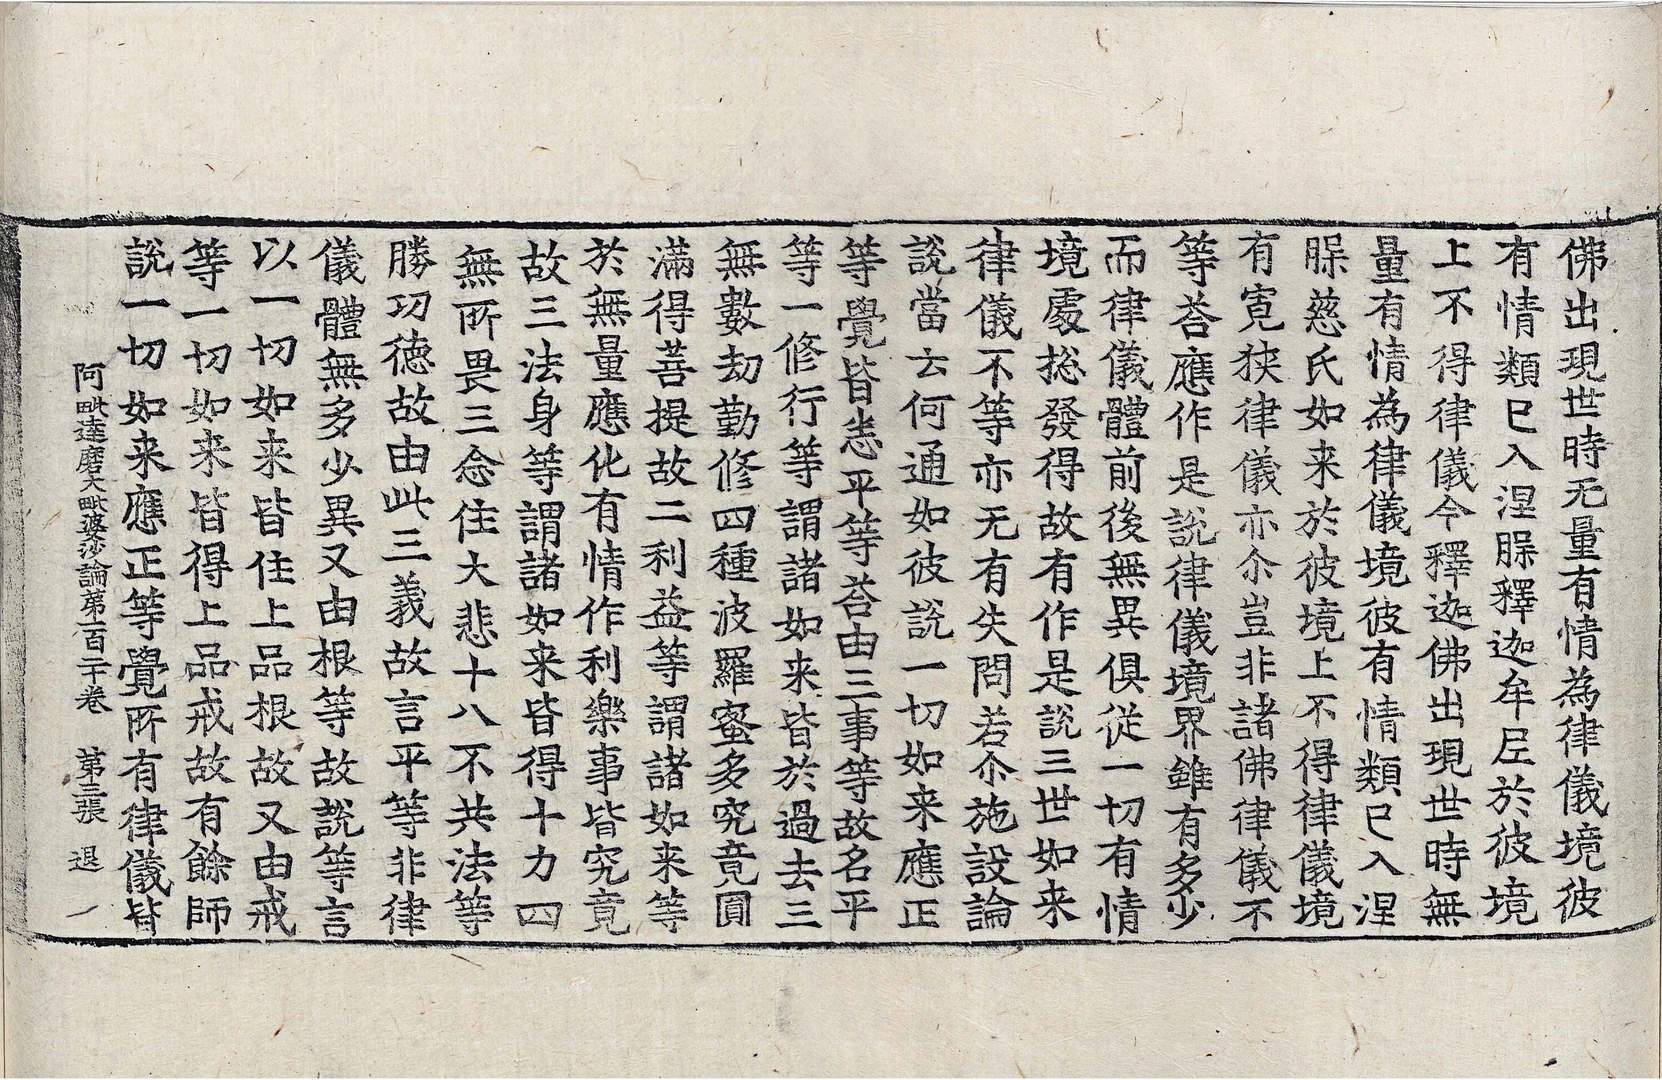 佛出現世時无量有情為律儀境彼
有情類已入涅槃釋迦牟尼於彼境
上不得律儀今釋迦佛出現世時無
量有情為律儀境彼有情類已入涅
槃慈氏如来於彼境上不得律儀境
有寛狭律儀亦尒豈非諸佛律儀不
等荅應作是説律儀境界雖有多少
而律儀體前後無異俱從一切有情
境處捴發得故有作是説三世如来
律儀不等亦无有失問若尒施設論
説當云何通如彼説一切如来應正
等覺皆悉平等荅由三事等故名平
等一修行等謂諸如来皆於過去三
無數劫勤修四種波羅蜜多究竟圓
滿得菩提故二利益等謂諸如来等
於無量應化有情作利樂事皆究竟
故三法身等謂諸如来皆得十力四
無所畏三念住大悲十八不共法等
勝㓛德故由此三義故言平等非律
儀體無多少異又由根等故説等言
以一切如来皆住上品根故又由戒
等一切如来皆得上品戒故有餘師
説一切如来應正等覺所有律儀皆
阿毗達磨大毗婆沙論第一百二十卷 第三張 退 一